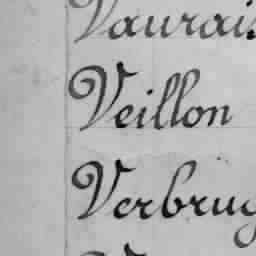 Vaurais
Veillon
Verbrug